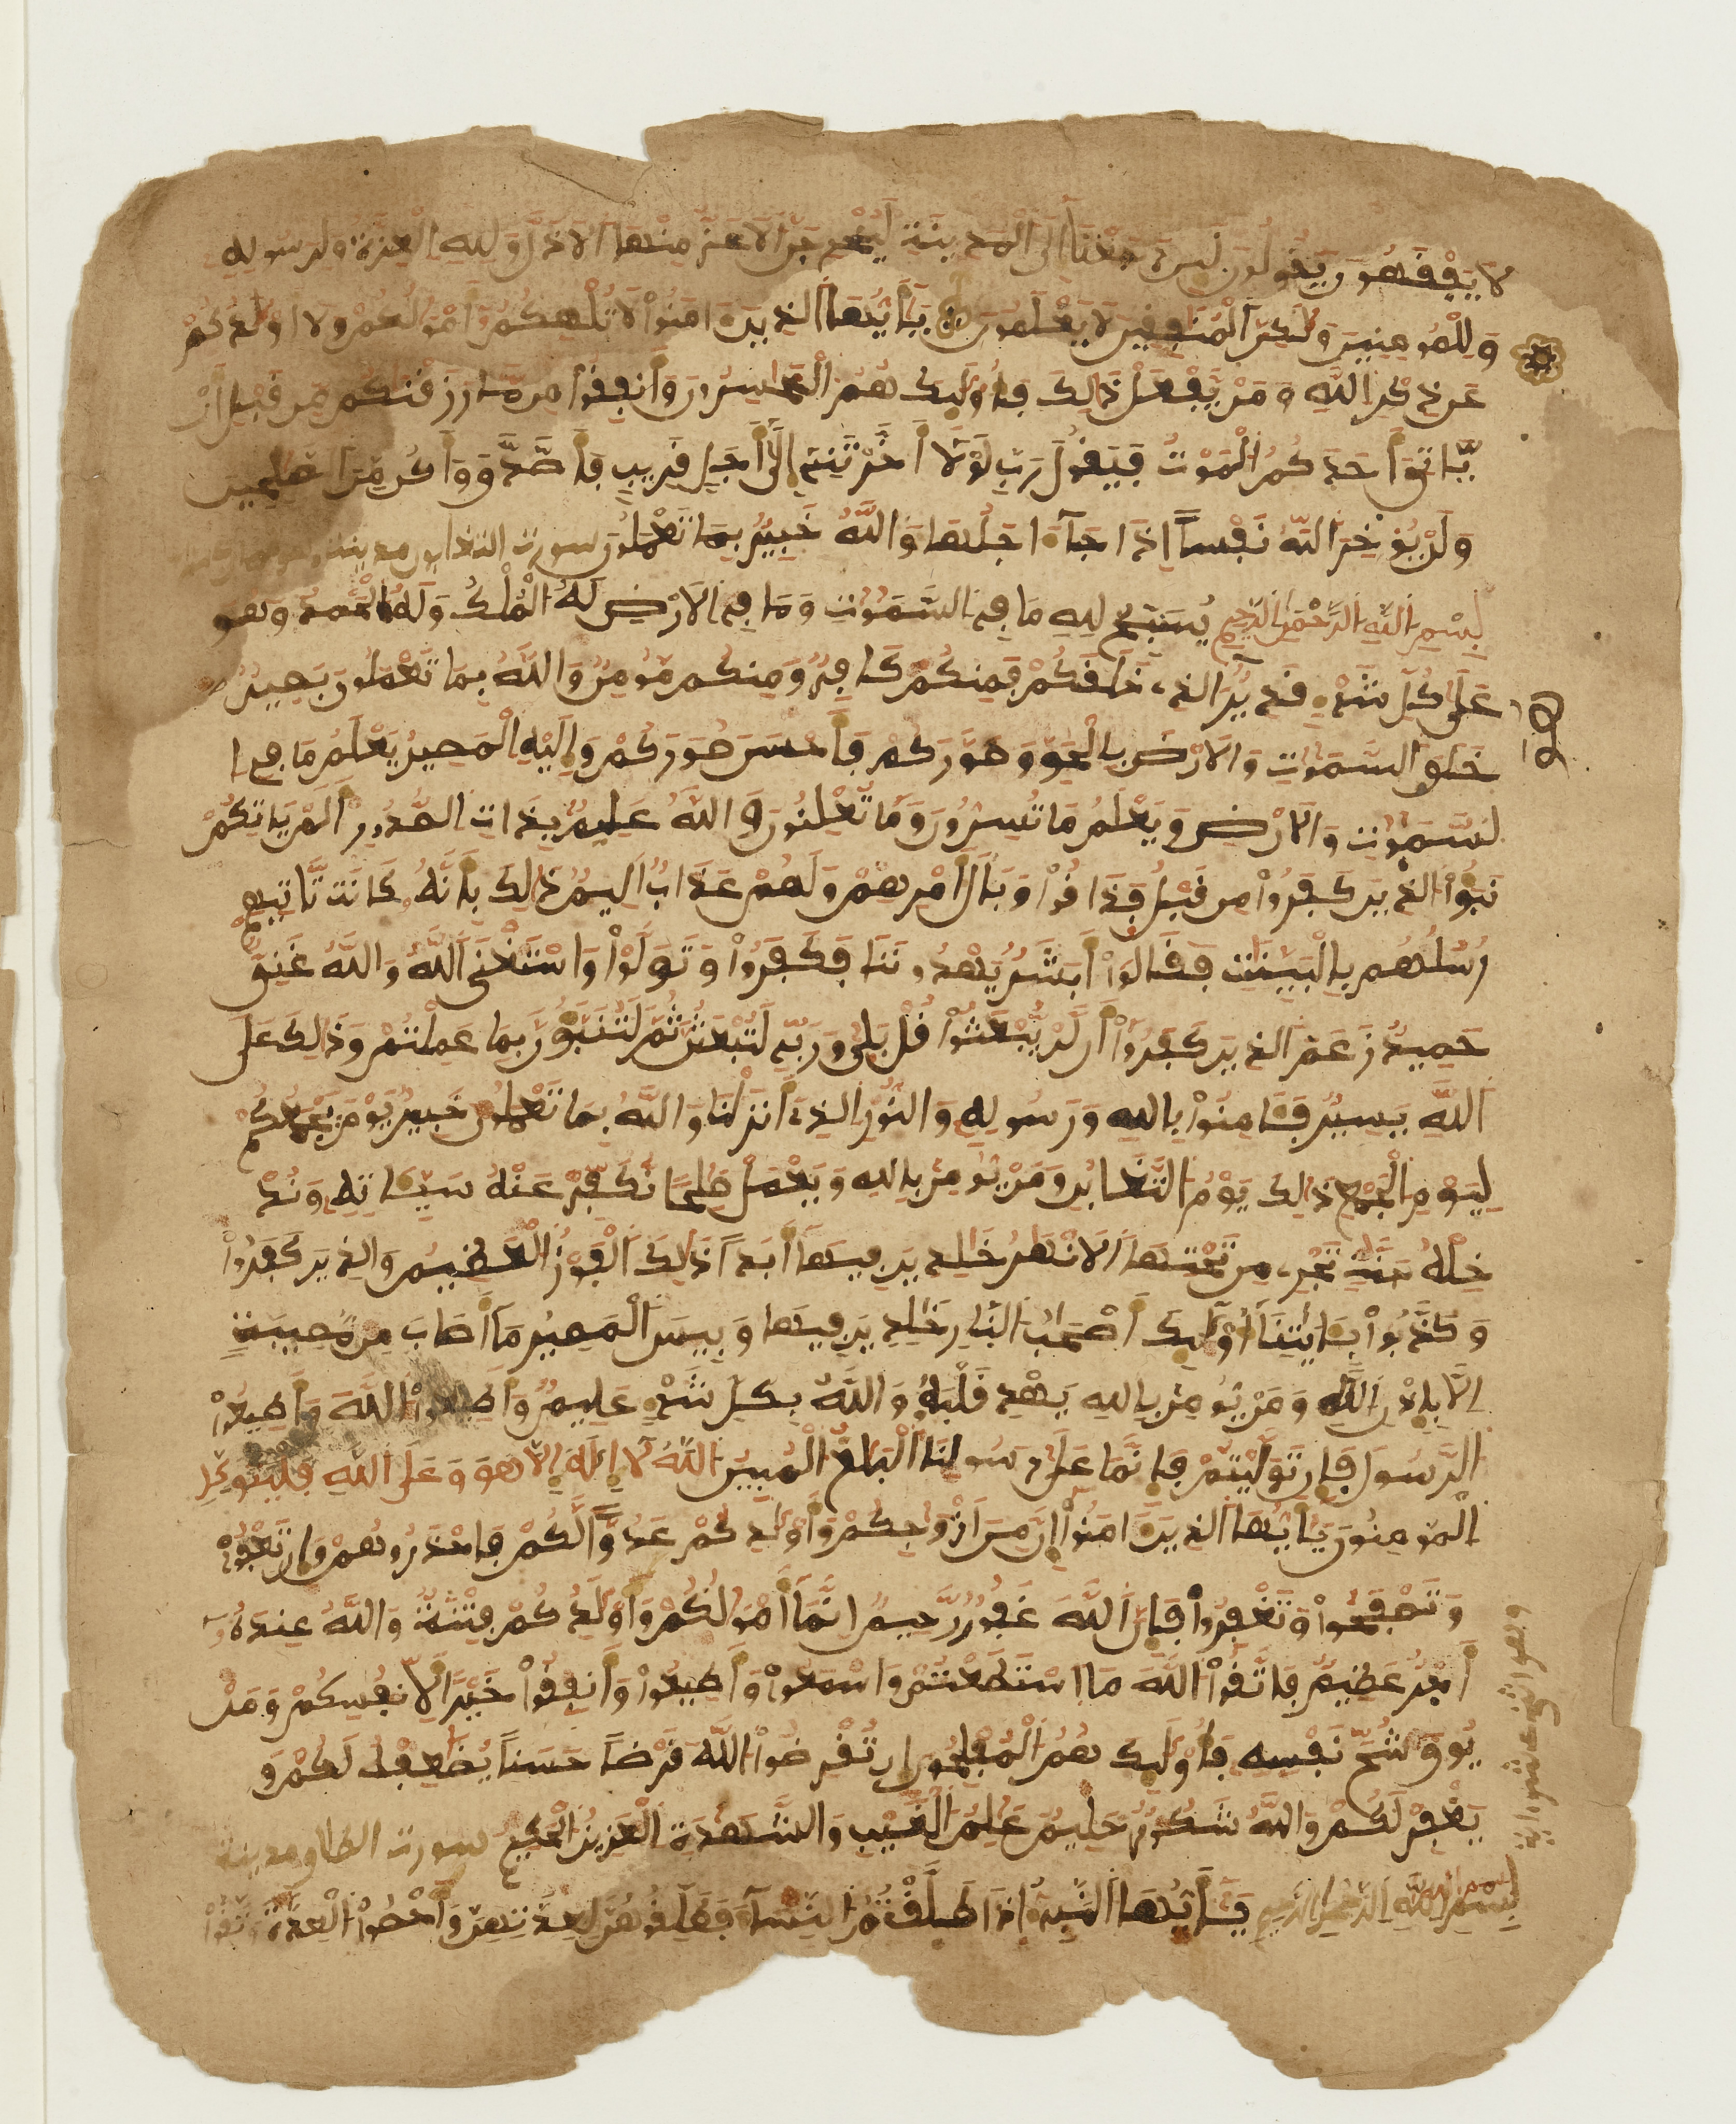 لَا يَفْقَهُونَ يَقُولُونَ لَئِن رَّجَعْنَا إِلَى الْمَدِينَةِ لَيُخْرِجَنَّ الْأَعَزُّ مِنْهَا الْأَذَلَّ وَلِلَّهِ الْعِزَّةُ وَلِرَسُولِهِ
وَلِلْمُومِنِينَ وَلَكِنَّ الْمُنَفِقِينَ لَا يَعْلَمُونَ يَأَيُّهَا الذِينَ ءَامَنُواْ لَا تُلْهِكُمُ أَمْوَلُكُمْ وَلَا أَوْلَدُكُمْ
عَن ذِكْرِ اللَّهِ وَمَنْ يَفْعَلْ ذَلِكَ فَأُوْلَئِكَ هُمُ الْخَسِرُونَ وَأَنفِقُواْ مِن مَّا رَزَقْنَكُم مِّن قَبْلِ أَنْ
يَّاتِيَ أَحَدَكُمُ الْمَوْتُ فَيَقُولَ رَبِّ لَوْلَا أَخَّرْتَنِي إِلَى أَجَلٍ قَرِيبٍ فَأَصَّدَّقَ وَأَكُن مِّنَ الصَّلِحِينَ
وَلَنْ يُؤَخِّرَ اللَّهُ نَفْساً إِذَا جَآءَ اجَلُهَا وَاللَّهُ خَبِيرٌ بِمَا تَعْمَلُونَ سورت التغابن مدينية
بِسْمِ اللَّهِ الرَّحْمَنِ الرَّحِيمِ يُسَبِّحُ لِلهِ مَا فِي السَّمَوَتِ وَمَا فِي الْأَرْضِ لَهُ الْمُلْكُ وَلَهُ الْحَمْدُ وَهُوَ
عَلَى كُلِّ شَيْءٍ قَدِيرٌ الذِي خَلَقَكُمْ فَمِنكُمْ كَافِرٌ وَمِنكُم مُّومِنٌ وَاللَّهُ بِمَا تَعْمَلُونَ بَصِيرٌ
خَلَقَ السَّمَوَتِ وَالْأَرْضَ بِالْحَقِّ وَصَوَّرَكُمْ فَأَحْسَنَ صُوَرَكُمْ وَإِلَيْهِ الْمَصِيرُ يَعْلَمُ مَا فِي ا
لسَّمَوَتِ وَالْأَرْضِ وَيَعْلَمُ مَا تُسِرُّونَ وَمَا تُعْلِنُونَ وَاللَّهُ عَلِيمٌ بِذَاتِ الصُّدُورِ أَلَمْ يَاتِكُمْ
نَبَؤُاْ الذِينَ كَفَرُواْ مِن قَبْلُ فَذَاقُواْ وَبَالَ أَمْرِهِمْ وَلَهُمْ عَذَابٌ أَلِيمٌ ذَلِكَ بِأَنَّهُ كَانَت تَّاتِيهِمْ
رُسُلُهُم بِالْبَيِّنَتِ فَقَالُواْ أَبَشَرٌ يَهْدُونَنَا فَكَفَرُواْ وَتَوَلَّوْاْ وَاسْتَغْنَى اللَّهُ وَاللَّهُ غَنِيٌّ
حَمِيدٌ زَعَمَ الذِينَ كَفَرُواْ أَن لَّنْ يُبْعَثُواْ قُلْ بَلَى وَرَبِّي لَتُبْعَثُنَّ ثُمَّ لَتُنَبَّؤُنَّ بِمَا عَمِلْتُمْ وَذَلِكَ عَلَى
اللَّهِ يَسِيرٌ فَئَامِنُواْ بِاللهِ وَرَسُولِهِ وَالنُّورِ الذِي أَنزَلْنَا وَاللَّهُ بِمَا تَعْمَلُونَ خَبِيرٌ يَوْمَ يَجْمَعُكُمْ
لِيَوْمِ الْجَمْعِ ذَلِكَ يَوْمُ التَّغَابُنِ وَمَنْ يُومِنْ بِاللهِ وَيَعْمَلْ صَلِحًا نُّكَفِّرْ عَنْهُ سَيِّئَاتِهِ وَنُدْ
خِلْهُ جَنَّتٍ تَجْرِي مِن تَحْتِهَا الْأَنْهَرُ خَلِدِينَ فِيهَا أَبَداً ذَلِكَ الْفَوْزُ الْعَظِيمُ وَالذِينَ كَفَرُواْ
وَكَذَّبُواْ بِئَايَتِنَا أُوْلَئِكَ أَصْحَبُ النَّارِ خَلِدِينَ فِيهَا وَبِيسَ الْمَصِيرُ مَا أَصَابَ مِن مُّصِيبَةٍ
إِلَّا بِإِذْنِ اللَّهِ وَمَنْ يُومِنْ بِاللهِ يَهْدِ قَلْبَهُ وَاللَّهُ بِكُلِّ شَيْءٍ عَلِيمٌ وَأَطِيعُواْ اللَّهَ وَأَطِيعُواْ
الرَّسُولَ فَإِن تَوَلَّيْتُمْ فَإِنَّمَا عَلَى رَسُولِنَا الْبَلَغُ الْمُبِينُ اللَّهُ لَا إِلَهَ إِلَّا هُوَ وَعَلَى اللَّهِ فَلْيَتَوَكَّلِ
الْمُومِنُونَ يَأَيُّهَا الذِينَ ءَامَنُواْ إِنَّ مِنَ ازْوَجِكُمْ وَأَوْلَدِكُمْ عَدُوّاً لَّكُمْ فَاحْذَرُوهُمْ وَإِن تَعْفُواْ
وَتَصْفَحُواْ وَتَغْفِرُواْ فَإِنَّ اللَّهَ غَفُورٌ رَّحِيمٌ إِنَّمَا أَمْوَلُكُمْ وَأَوْلَدُكُمْ فِتْنَةٌ وَاللَّهُ عِندَهُ
أَجْرٌ عَظِيمٌ فَاتَّقُواْ اللَّهَ مَا اسْتَطَعْتُمْ وَاسْمَعُواْ وَأَطِيعُواْ وَأَنفِقُواْ خَيْراً لِّأَنفُسِكُمْ وَمَنْ
يُوقَ شُحَّ نَفْسِهِ فَأُوْلَئِكَ هُمُ الْمُفْلِحُونَ إِن تُقْرِضُواْ اللَّهَ قَرْضاً حَسَناً يُضَعِفْهُ لَكُمْ وَ
يَغْفِرْ لَكُمْ وَاللَّهُ شَكُورٌ حَلِيمٌ عَلِمُ الْغَيْبِ وَالشَّهَدَةِ الْعَزِيزُ الْحَكِيمُ سورت الطلاق مدينية
بِسْمِ اللَّهِ الرَّحْمَنِ الرَّحِيمِ يَأَيُّهَا النَّبِيءُ إِذَا طَلَّقْتُمُ النِّسَآءَ فَطَلِّقُوهُنَّ لِعِدَّتِهِنَّ وَأَحْصُواْ الْعِدَّةَ وَاتَّقُواْ